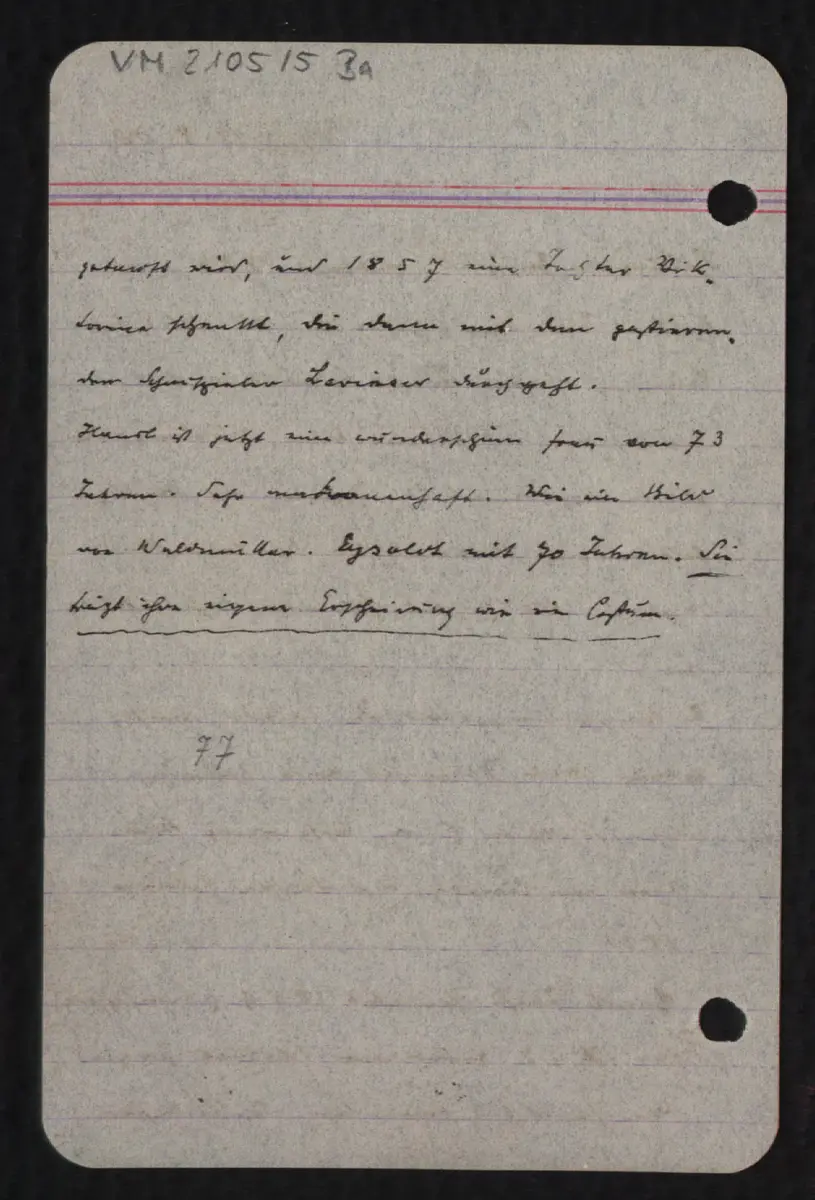 VM 210515 Ba
getauft wird, und 1857 eine Tochter Vik-
toria schenkt, die dann mit dem gastieren-
den Schauspieler durchgeht.
Hansl ist jetzt eine wunderschöne Frau von 73
Jahren. Sehr matronenhaft. Wie ein Bild
von Waldmüller. Eysoldt mit 70 Jahren. Sie
trägt ihre eigene Erscheinung wie ein Costüm.
77